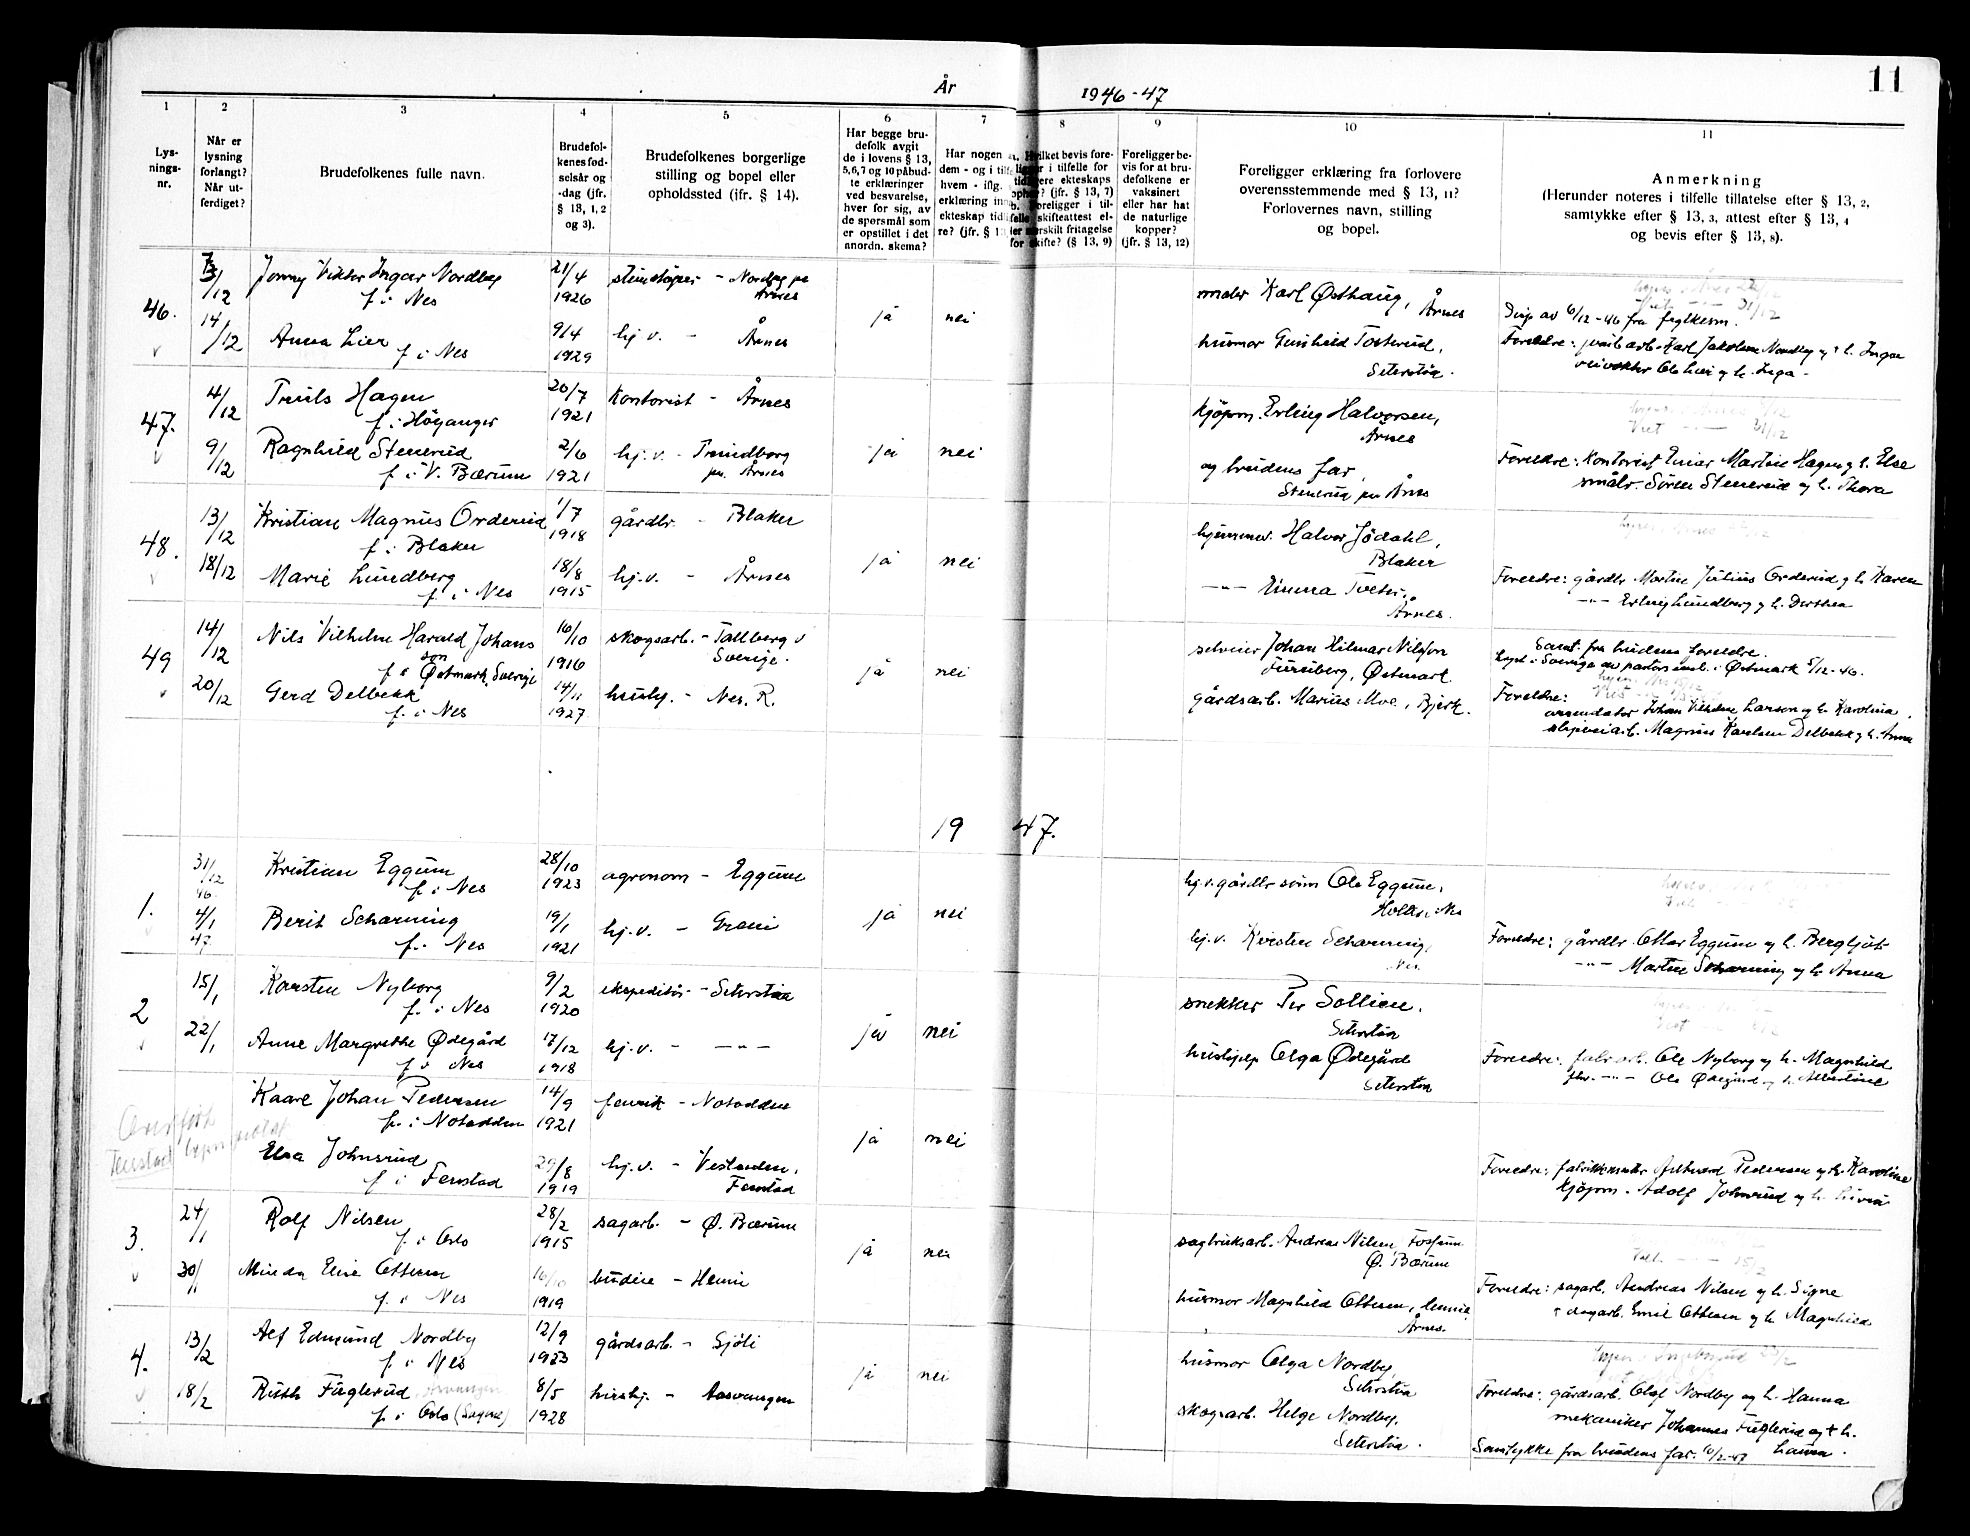 11
År 1946-47
1 2 3 4 5 6 7 8 9 10 11
Lys-
nings-
nr.
Når er
lysning
forlangt?
Når ut-
ferdiget?
Brudefolkenes fulle navn.
Brudefol-
kenes fød-
selsår og
-dag (jfr.
§ 13, 1, 2
og 3).
Brudefolkenes borgerlige
stilling og bopel eller
opholdssted (ifr. § 14).
Har begge bru-
defolk avgit
de i lovens § 13,
5,6,7 og 10 påbud-
te erklæringer
ved besvarelse,
hver for sig, av
de spørsmål som
er opstillet i det
anordn. skema?
Har nogen
dem - og i
hvem - iflg.
erklæring in
ekteskap tid
re? (jfr. § 1
Hvilket bevis fore-
i tilfelle for
ekteskaps
? (jfr. § 13, 7)
Foreligger i til-
skifteattest el-
særskilt fritagelse
for skifte? (§ 13, 9)
Foreligger be-
vis for at bru-
defolkene er
vaksinert
eller har hat
de naturlige
kopper?
(jfr. § 13, 12)
Foreligger erklæring fra forlovere
overensstemmende med § 13, 11?
Forlovernes navn, stilling
og bopel.
Anmerkning
(Herunder noteres i tilfelle tillatelse efter § 13, 2,
samtykke efter § 13, 3, attest efter § 13, 4
og bevis efter § 13, 8).
46.
/12
14/12
Jonny Viktor Ingar Nordby
f. i Nes
Anna Lier
f. i Nes
21/4
1926
9/4
1929
- Nordby pr
Årnes
hj. v. - Årnes
ja nei
Karl Østhaug,
Årnes
husmor Gunhild Tosterud,
Seterstøa.
Disp av 6/12-46 fra fylkesm.
Foreldre: Karl Jakobsen Nordby og h. Inga
Ole Lier og h. Inga
47.
4/12
9/12
Truls Hagen
f. i Høyanger
Ragnhild Stenerud
f. i V. Bærum
20/7
1921
2/6
1921
Kontorist - Årnes
hj. v. - Trondborg
pr. Årnes
ja nei
kjøpm. Erling Halvorsen,
Årnes
og brudens far,
Stenerud pr Årnes
Foreldre: Kontorist Einar Martin Hagen og h. Else
småbr. Søren Stenerud og h. Thora
48.
13/12
18/12
Kristian Magnus Orderud
f. i Blaker
Marie Lundberg
f. i Nes
1/7
1918
18/8
1915
gårdbr. - Blaker
hj. v. - Årnes
ja nei
hjemmev. Halvor Jødahl,
Blaker
-"- Emma Tveter,
Årnes.
Foreldre: gårdbr Martin Julius Orderud og h. Karen
-"- Erling Lundberg og h. Dorthea
49
14/12
20/12
Nils Vilhelm Harald Johans
son
f. i Østmark, Sverige
Gerd Delbekk
f. i Nes
16/10
1916
14/11
1927
skogsarb. - Tallberg i
Sverige.
hushj. - Nes. R.
ja nei
Johan Hilmar Nilsson
Furuberg, Østmark
gårdsarb. Marius Moe, Bjerk.
Samt. fra brudens foreldre.
Lyst i Sverige av pastorsemb. i Østmark 5/12-46.
Foreldre:
arrendator Johan Vilhelm Larson og h. Karolina
Magnus Karelsen Delbekk og h. Anna
1947.
1.
31/12
46.
4/1
47
Kristian Eggum
f. i Nes
Berit Scharning
f. i Nes
28/10
1923
19/1
1921
agronom - Eggum
hj. v. - Greni
ja nei
hj. v. gårdbr sønn Ole Eggum,
hj. v. Kirsten Scharning,
Nes
Foreldre: gårdbr. Ottar Eggum og h. Bergljot
-"- Martin Scharning og h. Anna
2
15/1
22/1
Karsten Nyborg
f. i Nes
Anne Margrethe Ødegård
f. i Nes
9/2
1920
17/12
1918
ekspeditør - Seterstøa
hj. v. - -"-
ja nei
snekker Per Sollien.
Seterstøa
hushjelp Olga Ødegård
Seterstøa
Foreldre: fabr. arb. Ole Nyborg og h. Magnhild
fhv. -"- Ole Ødegård og h. Albertine
Kaare Johan Pedersen
f. i Notodden
Elsa Johnsrud
f. i Fenstad
14/9
1921
29/8
1919
fenrik - Notodden
hj. v. - Vestenden,
Fenstad
ja nei
Foreldre: Pedersen og h. Karoline
kjøpm. Adolf Johnsrud og h.
3.
24/1
30/1
Rolf Nilsen
f. i Oslo
Minda Elise Ottesen
f. i Nes
28/2
1915
16/10
1919
sagarb. - Ø. Bærum
budeie - Henni
ja nei
sagbruksarb. Andreas Nilsen, Fossum
Ø. Bærum
husmor Magnhild Ottesen, Henni,
Årnes.
Foreldre: sagarb. Andreas Nilsen og h. Signe
Emil Ottesen og h. Magnhild
4.
13/2
18/2
Alf Edmund Nordby
f. i Nes
Ruth Fuglerud
f. i Oslo (Sagene)
12/9
1923
8/5
1928
gårdsarb. - Sjøli
hushj. - Aasvangen
ja nei
husmor Olga Nordby,
Seterstøa
skogsarb. Helge Nordby,
Seterstøa.
Foreldre: gårdsarb. Olaf Nordby og h. Hanna
mekaniker Johannes Fuglerud og h.
Laura.
Samtykke fra brudens far. 10/2-47